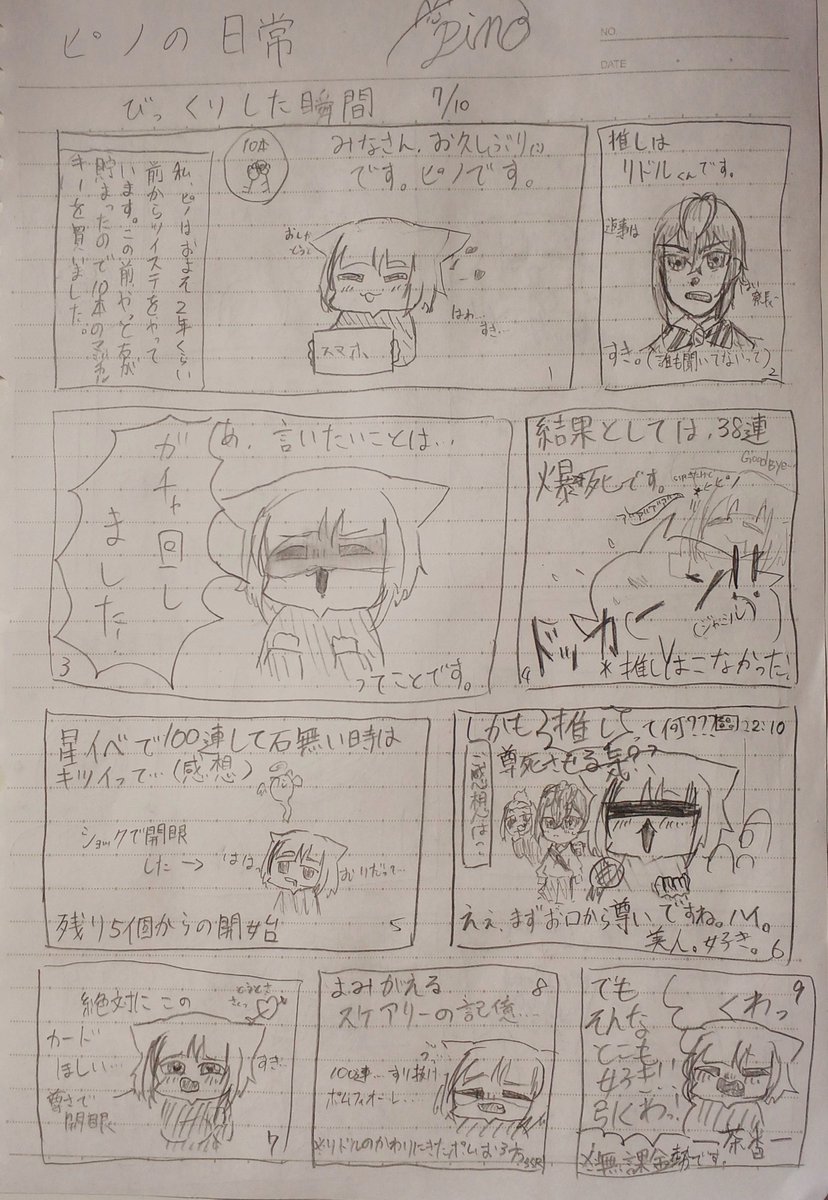 ピノの日常
pino
NO
DATE
びっくりした瞬間 7/10
みなさん、お久しぶり
です。ピノです。
10本
私、ピノはおよそ2年くらい
前からツイステをやって
います。この前やっと友が
貯まったので10本のマジカル
キーを買いました。
はわ…
すき…
スマホ
1
推しは
リドルくんです。
返事は
はい
寮長
すき。(誰も聞いてないって)
2
あ、言いたいことは…
ガチャ回し
ました…
ってことです。
3
結果としては、38連
爆死です。
Good Bye…
ドッカーン!!
(ジャミル)
*推しはこなかった。
4
星イベで100連して石無い時は
キツイって…(感想)
ショックで開眼
した→
はは…
むりだって…
残り5個からの開始
5
しかも3推しって何??? 22:10
尊死させる気??
ご感想は…
ええ、まずお口から尊いですね。ハイ。
美人。好き。
6
絶対にこの
カード
ほしい…
すき…
尊さで
開眼
7
よみがえる
スケアリーの記憶…
8
100連…すり抜け
ポムフィオーレ…
*リドルのかわりにきたポムは3方 SSR
でも
そんな
とこも
好き!!
引くわっ!
くわっ
9
茶番
*無課金勢です。